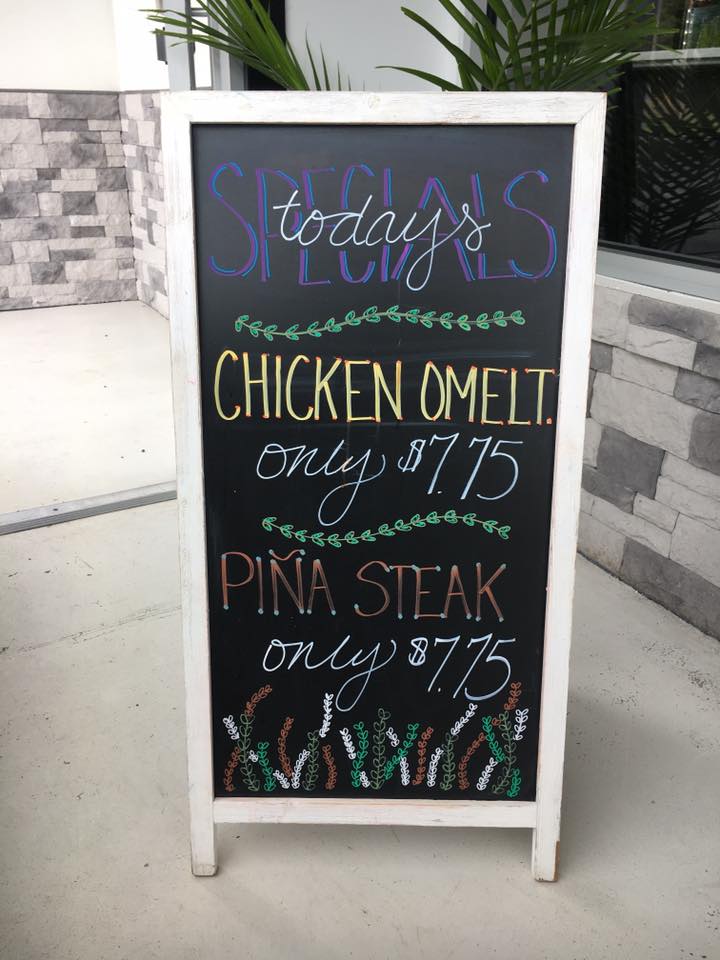 todays
SPECIALS
CHICKEN OMELT.
only $7.75
PIÑA STEAK
only $7.75